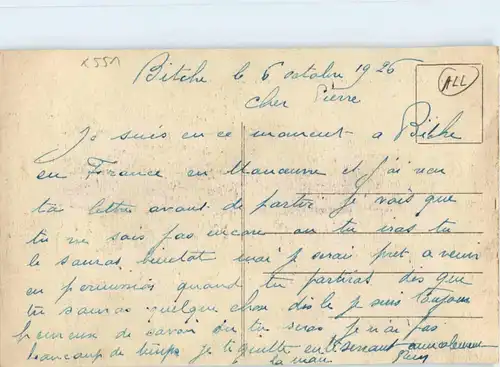 x551
ALL
Bitche le 6 octobre 1926
cher Pierre
Je suis en ce moment a Bithe
en France en Manoeuvre et j'ai recu
ta lettre avant de partir je vois que
tu ne sais pas encore ou tu iras tu
le sauras bientot moi je serais pret a venir
en permission quand tu partiras des que
tu sauras quelque chose dis le je suis toujours
heureux de savoir ou tu seras je n'ai pas
beaucoup de temps je te quitte en te serrant amicalement
la main